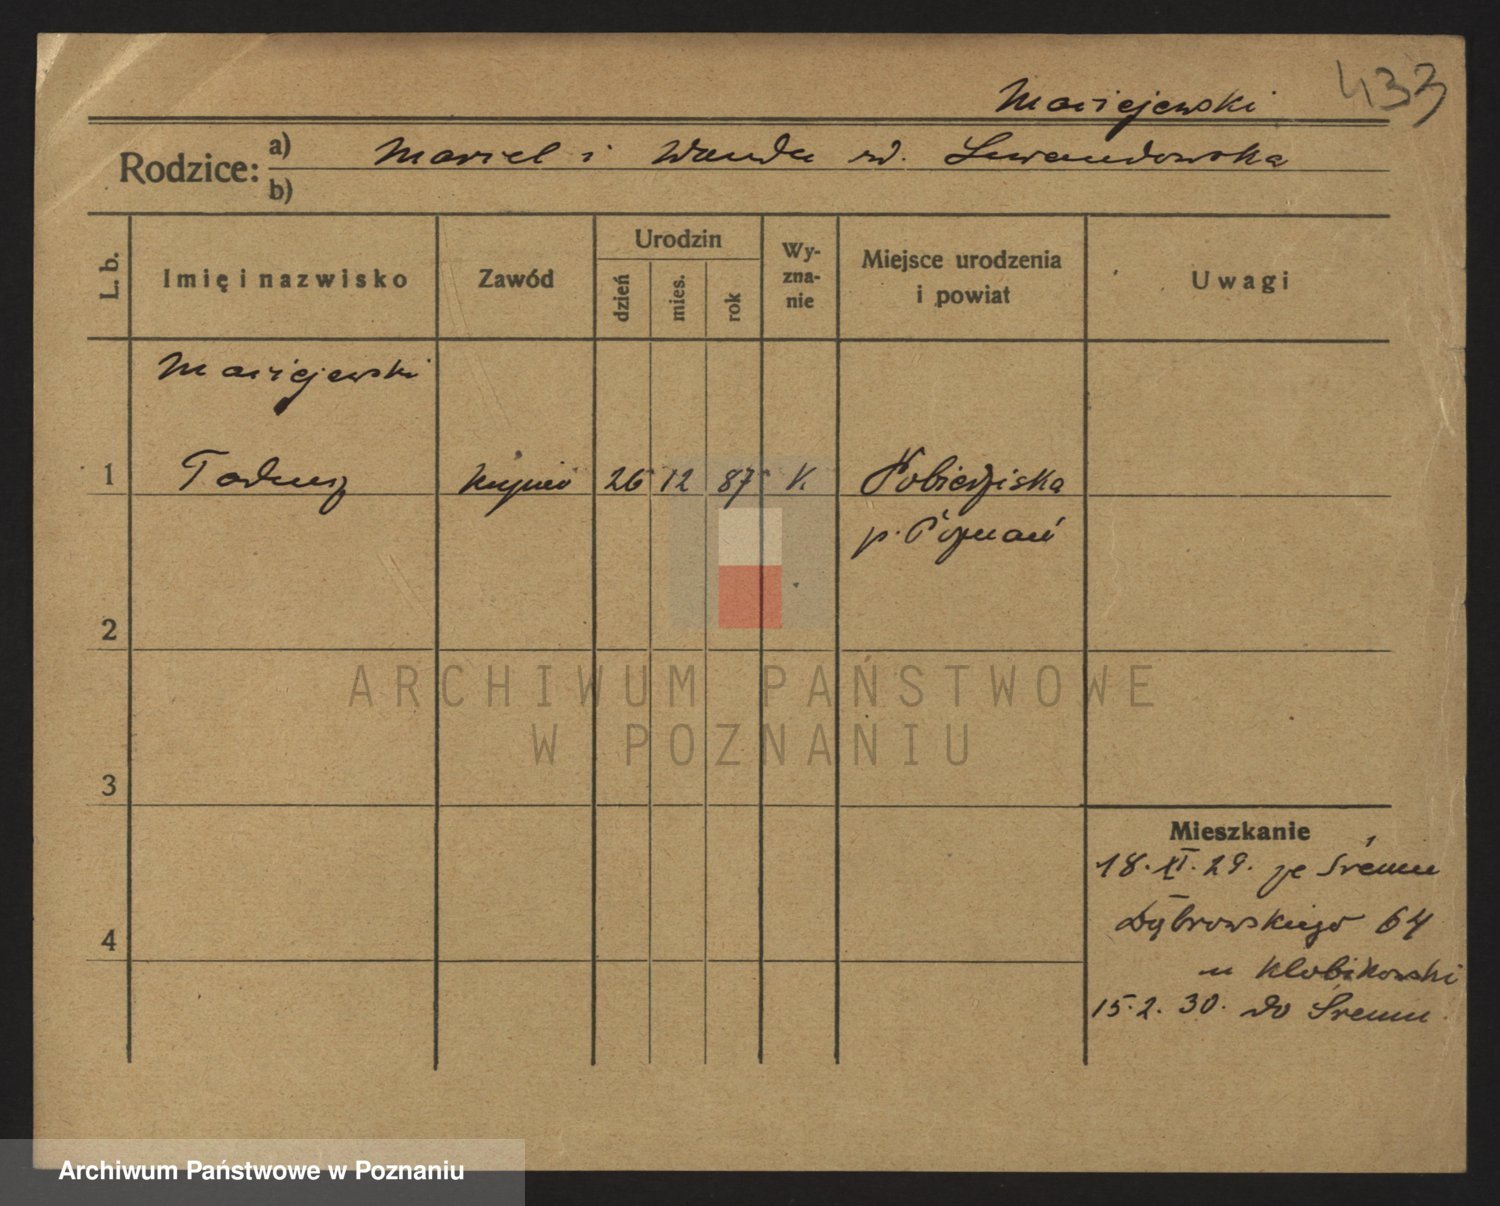 433
Maciejewski
Rodzice: a) Marcel i Wanda rd. Lewandowska
b)
L. b.
Imię i nazwisko
Zawód
Urodzin
dzień
mies.
rok
Wy-
zna-
nie
Miejsce urodzenia
i powiat
Uwagi
Maciejewski
1 Tadeusz kupiec 26 12 87 k. Pobiedziska
p. Poznań
2
3
4
Mieszkanie
18. XI. 29. ze Śremu
Dąbrowskiego 64
u Klobikowski
15. 2. 30. do Śremu.
ARCHIWUM PAŃSTWOWE
W POZNANIU
Archiwum Państwowe w Poznaniu